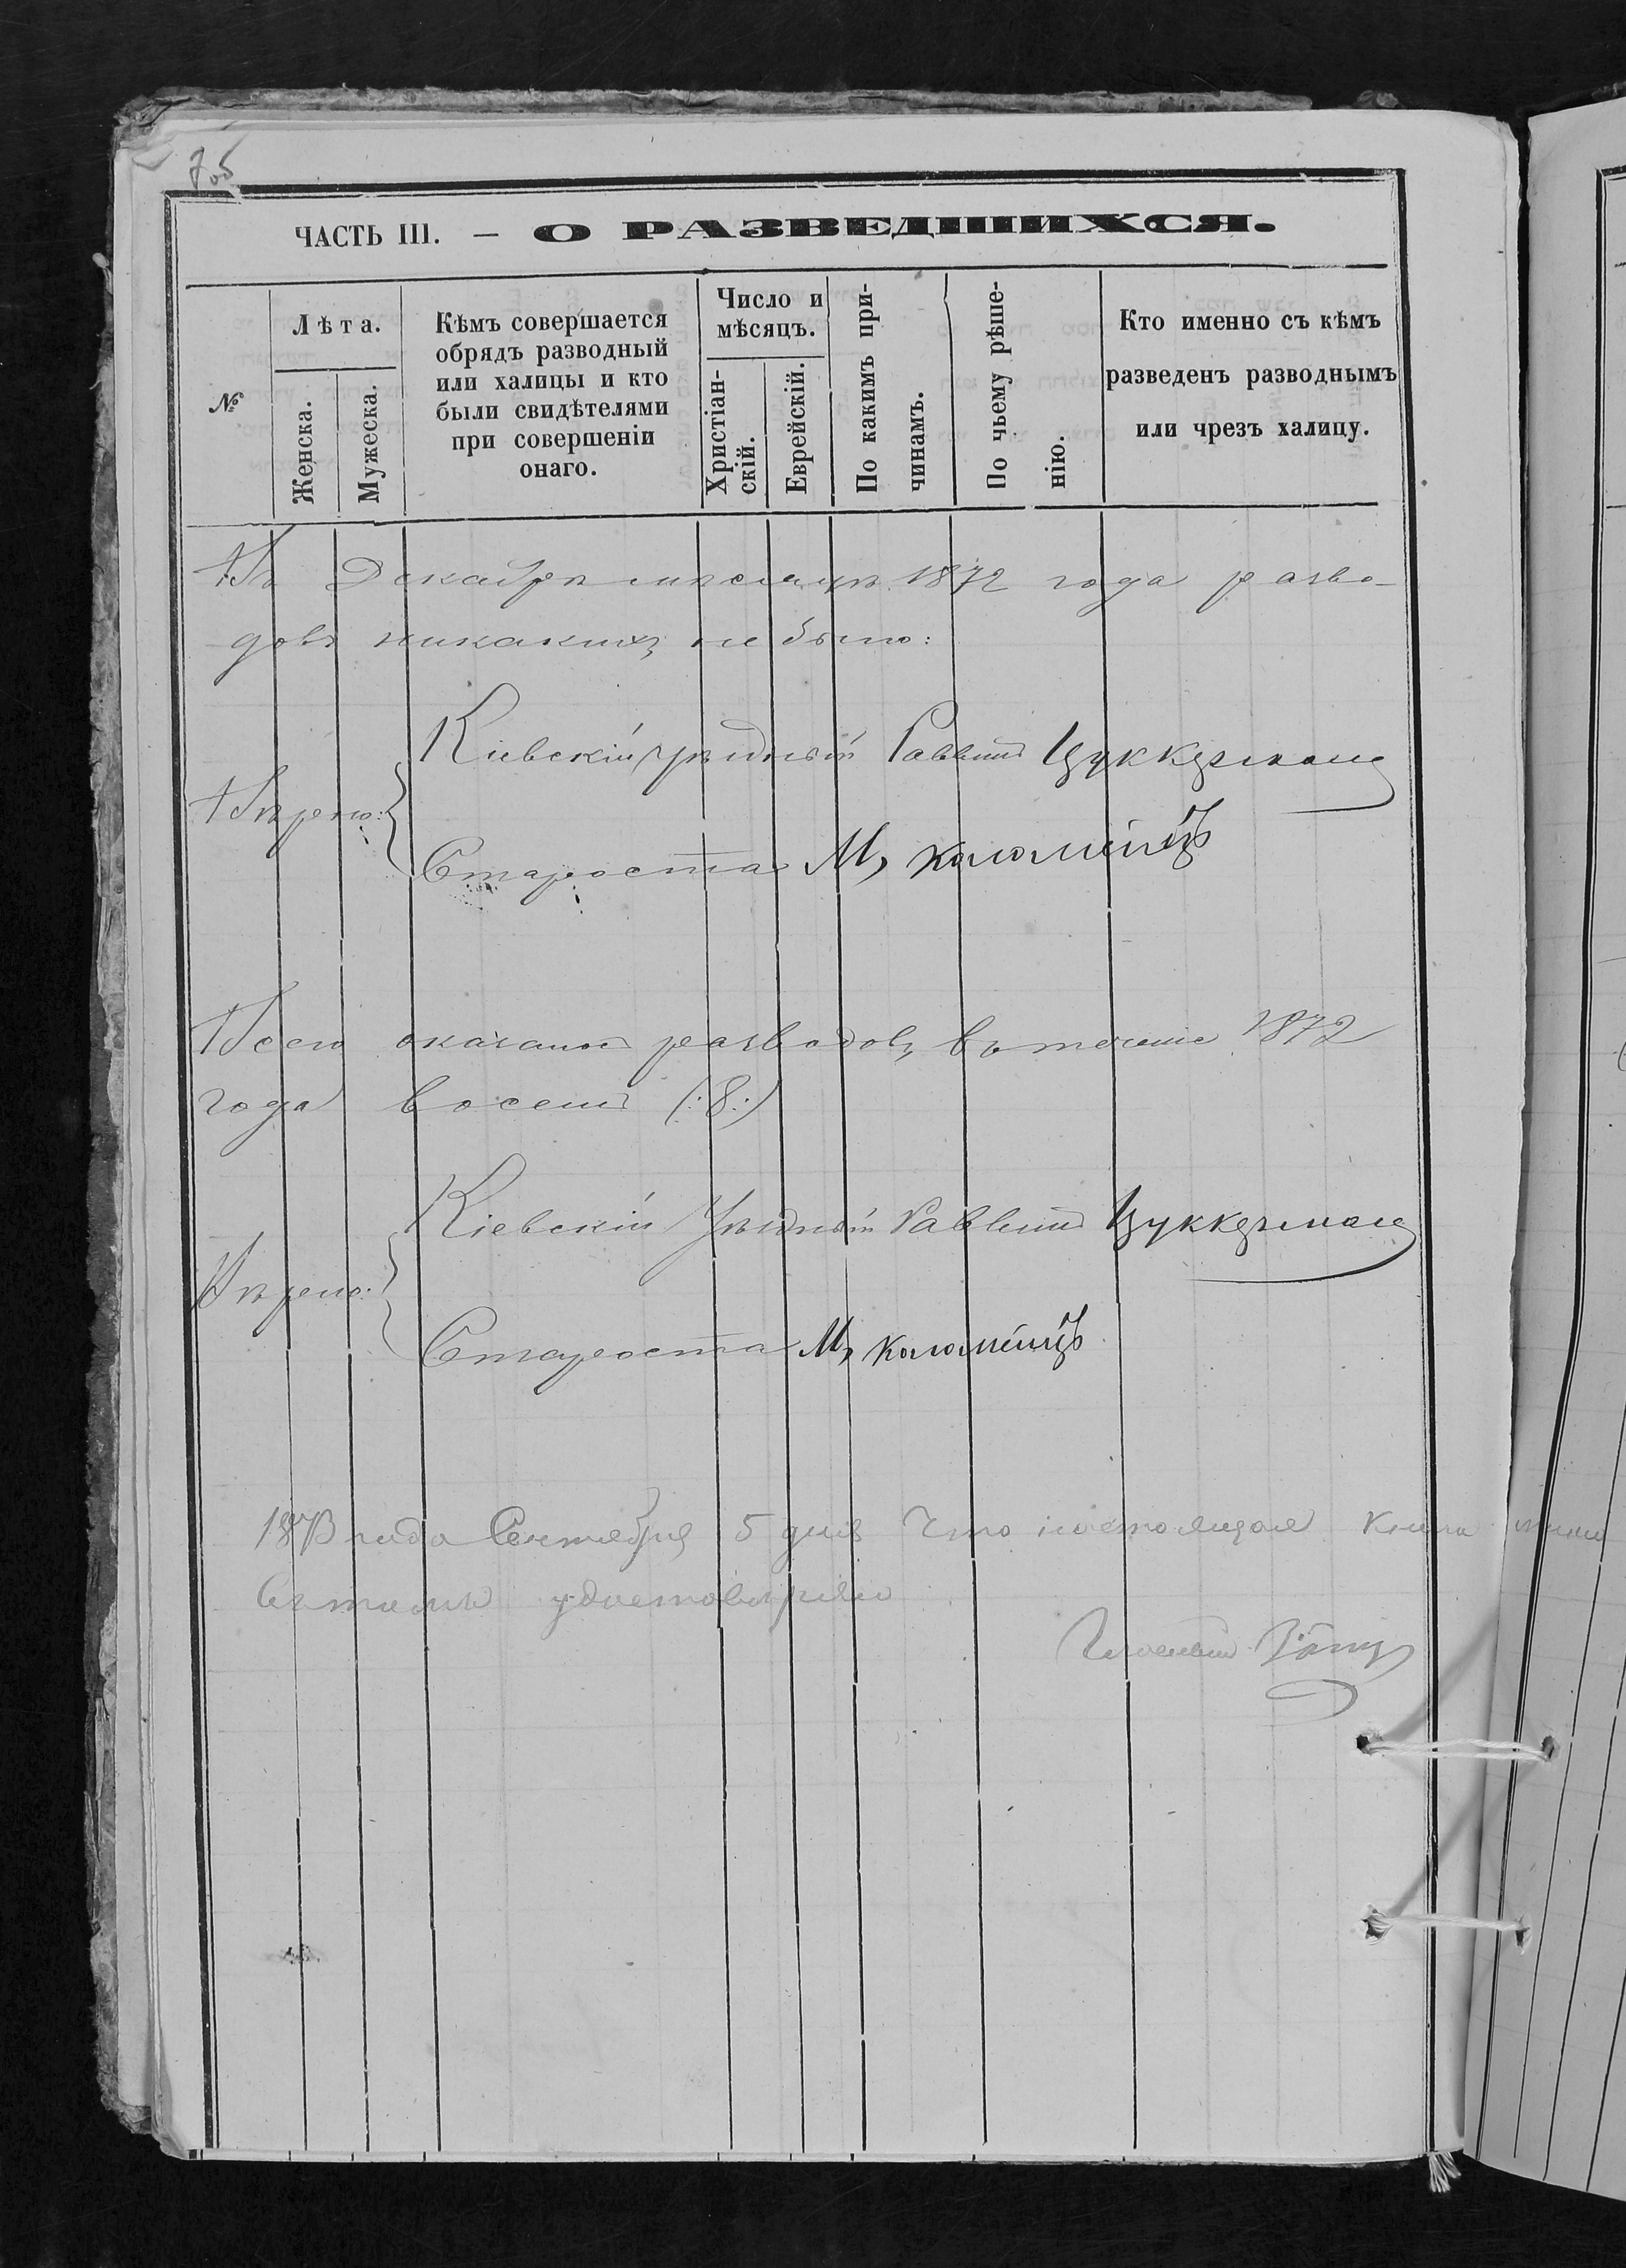 705
ЧАСТЬ III. — О РАЗВЕДШИХСЯ.
№
Лѣта.
Женска.
Мужеска.
Кѣмъ совершается
обрядъ разводный
или халицы и кто
были свидѣтелями
при совершеніи
онаго.
Число и
мѣсяцъ.
Христіан-
скій.
Еврейскій.
По какимъ при-
чинамъ.
По чьему рѣше-
нію.
Кто именно съ кѣмъ
разведенъ разводнымъ
или чрезъ халицу.
Въ Декабрѣ мѣсяцѣ 1872 года разво-
довъ никакихъ не было:
Кіевскій уѣздный Раввинъ Цуккерманъ
Вѣрно:
Староста М. Коломѣйцъ
Всего оказалось разводовъ въ теченіе 1872
года восемь (:8:)
Кіевскій Уѣздный Раввинъ Цуккерманъ
Вѣрно:
Староста М. Коломѣйцъ
1873 года Сентября 5 дня Что настоящая Книга
удостовѣряю